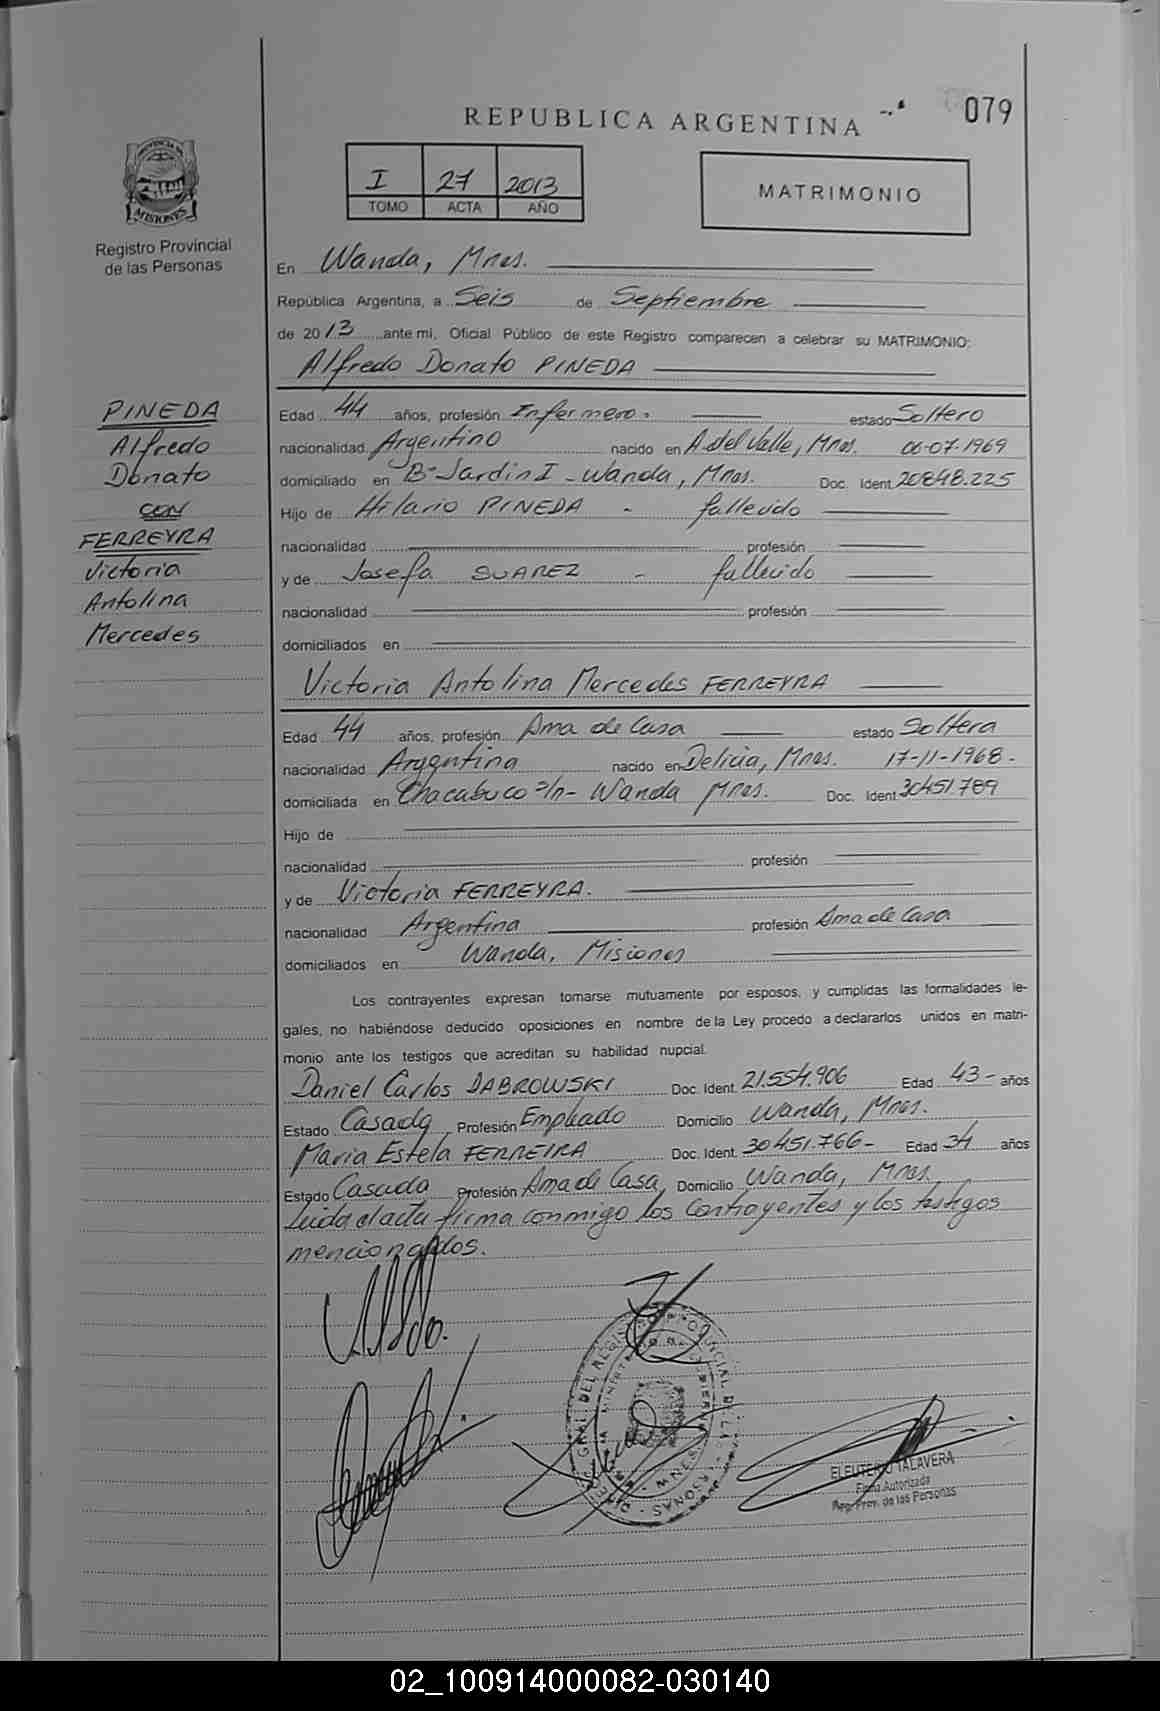 REPUBLICA ARGENTINA
079
I 27 2013
TOMO ACTA AÑO
MATRIMONIO
PROVINCIA DE
MISIONES
Registro Provincial
de las Personas
En Wanda, Mnes.
República Argentina, a Seis de Septiembre
de 2013 ante mi, Oficial Público de este Registro comparecen a celebrar su MATRIMONIO:
Alfredo Donato PINEDA
PINEDA
Alfredo
Donato
CON
FERREYRA
Victoria
Antolina
Mercedes
Edad 44 años, profesión Infermero. estado Soltero
nacionalidad Argentino nacido en A. del Valle, Mnes. 06-07-1969
domiciliado en B- Jardin I - Wanda, Mnes. Doc. Ident 20848.225
Hijo de Hilario PINEDA - fallecido
nacionalidad profesión
y de Josefa SUAREZ - fallecido
nacionalidad profesión
domiciliados en
Victoria Antolina Mercedes FERREYRA
Edad 44 años, profesión Ama de Casa estado Soltera
nacionalidad Argentina nacido en Delicia, Mnes. 17-11-1968-
domiciliada en Chacabuco s/n- Wanda Mnes. Doc. Ident 30451.789
Hijo de
nacionalidad profesión
y de Victoria FERREYRA.
nacionalidad Argentina profesión Ama de Casa
domiciliados en Wanda, Misiones
Los contrayentes expresan tomarse mutuamente por esposos, y cumplidas las formalidades le-
gales, no habiéndose deducido oposiciones en nombre de la Ley procedo a declararlos unidos en matri-
monio ante los testigos que acreditan su habilidad nupcial.
Daniel Carlos DABROWSKI Doc. Ident. 21.554.906 Edad 43- años
Estado Casado Profesión Empleado Domicilio Wanda, Mnes.
Maria Estela FERREIRA Doc. Ident. 30451.766- Edad 34 años
Estado Casada Profesión Ama de Casa Domicilio Wanda, Mnes.
Leida el acta firma conmigo los contrayentes y los testigos
mencionados.
ELEUTERIO TALAVERA
Firma Autorizada
Reg. Prov. de las Personas
02_100914000082-030140